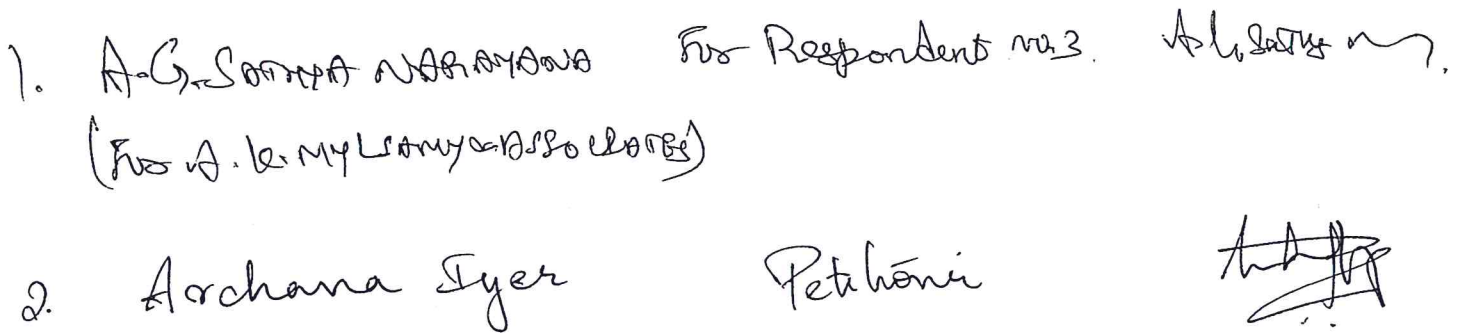 1. A.G. SATHYA NARAYANA For Respondent no.3.
(For A.K. MYLSAMY & ASSOCIATES)
2. Archana Iyer Petitioner